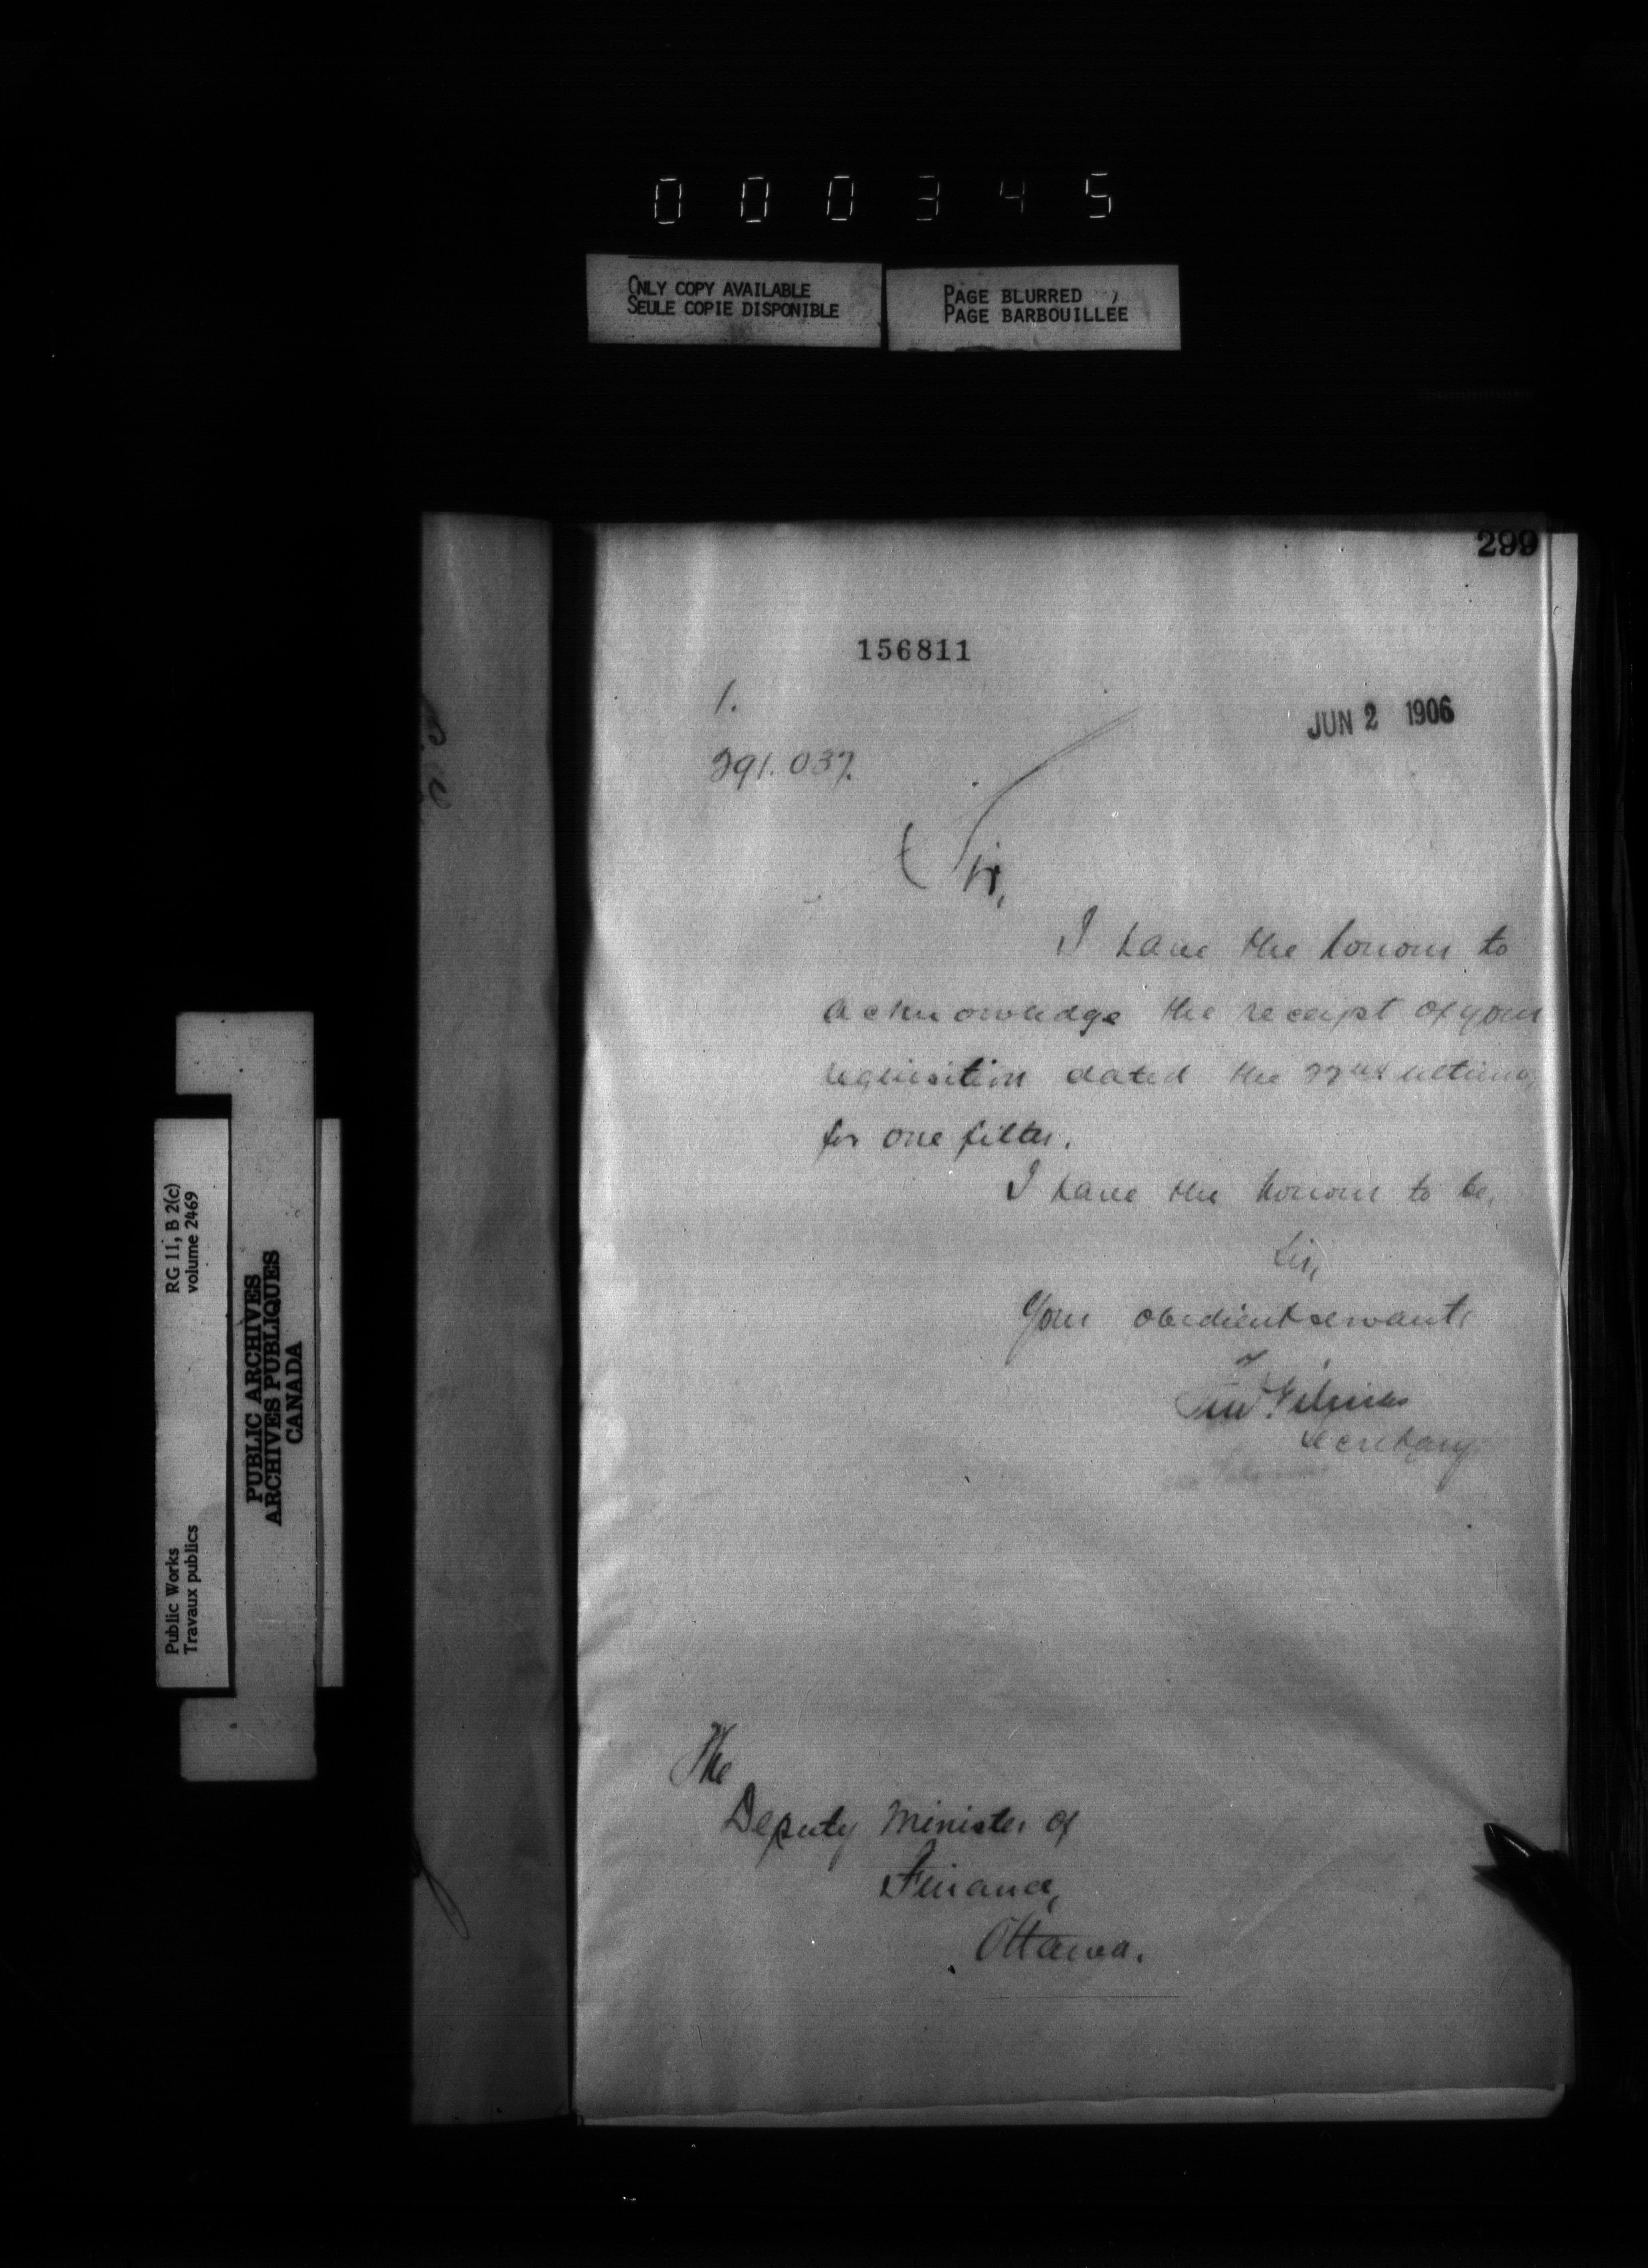 000345
ONLY COPY AVAILABLE
SEULE COPIE DISPONIBLE
PAGE BLURRED
PAGE BARBOUILLÉE
299
156811
1.
JUN 2 1906
291.037.
Sir,
I have the honour to
acknowledge the receipt of your
requisition dated the 22nd ultimo,
for one filter.
I have the honour to be,
Sir,
Your obedient servant,
Fred Gélinas
Secretary
The
Deputy Minister of
Finance,
Ottawa.
RG 11, B 2(c)
volume 2469
Public Works
Travaux publics
PUBLIC ARCHIVES
ARCHIVES PUBLIQUES
CANADA